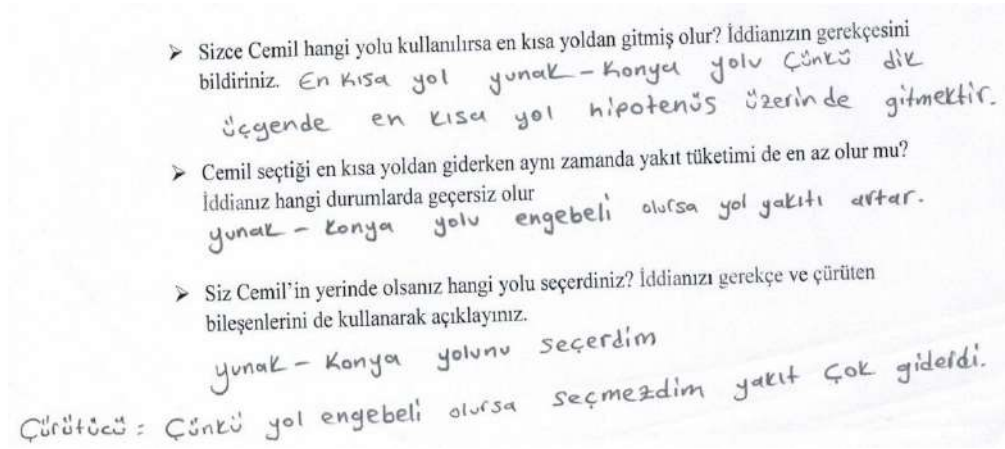 ➤ Sizce Cemil hangi yolu kullanılırsa en kısa yoldan gitmiş olur? İddianızın gerekçesini
bildiriniz. En kısa yol yunak – Konya yolu Çünkü dik
üçgende en kısa yol hipotenüs üzerinde gitmektir.
➤ Cemil seçtiği en kısa yoldan giderken aynı zamanda yakıt tüketimi de en az olur mu?
İddianız hangi durumlarda geçersiz olur
yunak – Konya yolu engebeli olursa yol yakıtı artar.
➤ Siz Cemil'in yerinde olsanız hangi yolu seçerdiniz? İddianızı gerekçe ve çürüten
bileşenlerini de kullanarak açıklayınız.
yunak – Konya yolunu seçerdim
Çürütücü = Çünkü yol engebeli olursa seçmezdim yakıt çok giderdi.